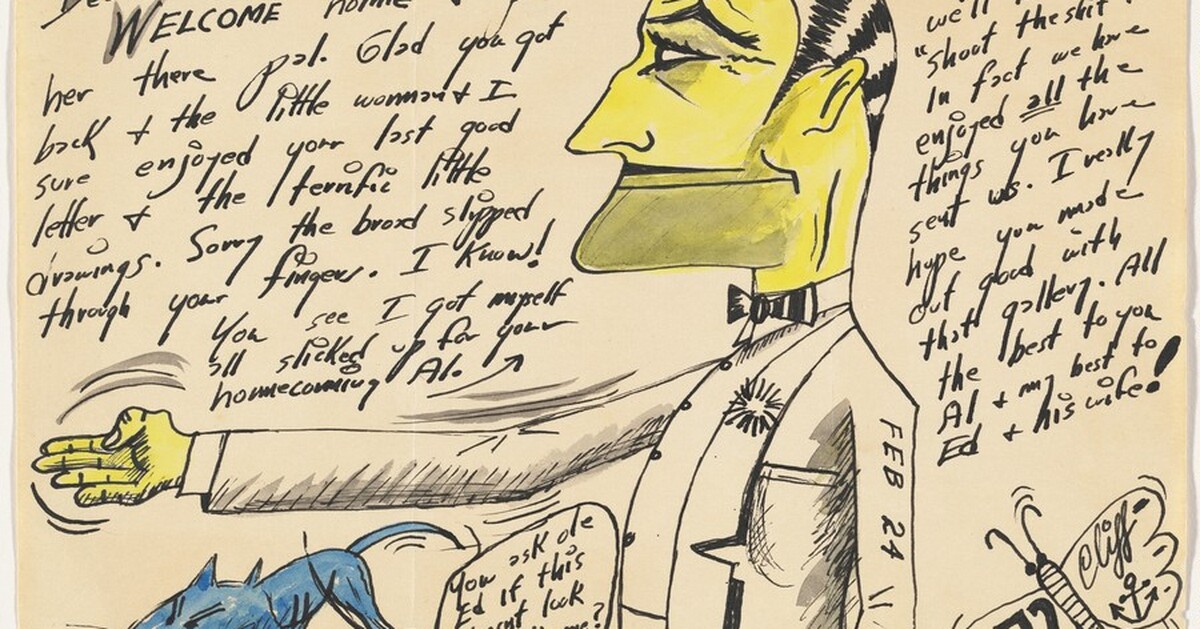 WELCOME home
her there pal. Glad you got
back + the little woman + I
sure enjoyed your last good
letter + the terrific little
drawings. Sorry the broad slipped
through your fingers. I Know!
You see I got myself
all slicked up for your
homecoming Al.
we'll
"shoot the shit
In fact we have
enjoyed all the
things you have
sent us. I really
hope you made
out good with
that gallery. All
the best to you
Al + my best to
Ed + his wife!
FEB 24
You ask ole
Ed if this
look
me?
Cliff